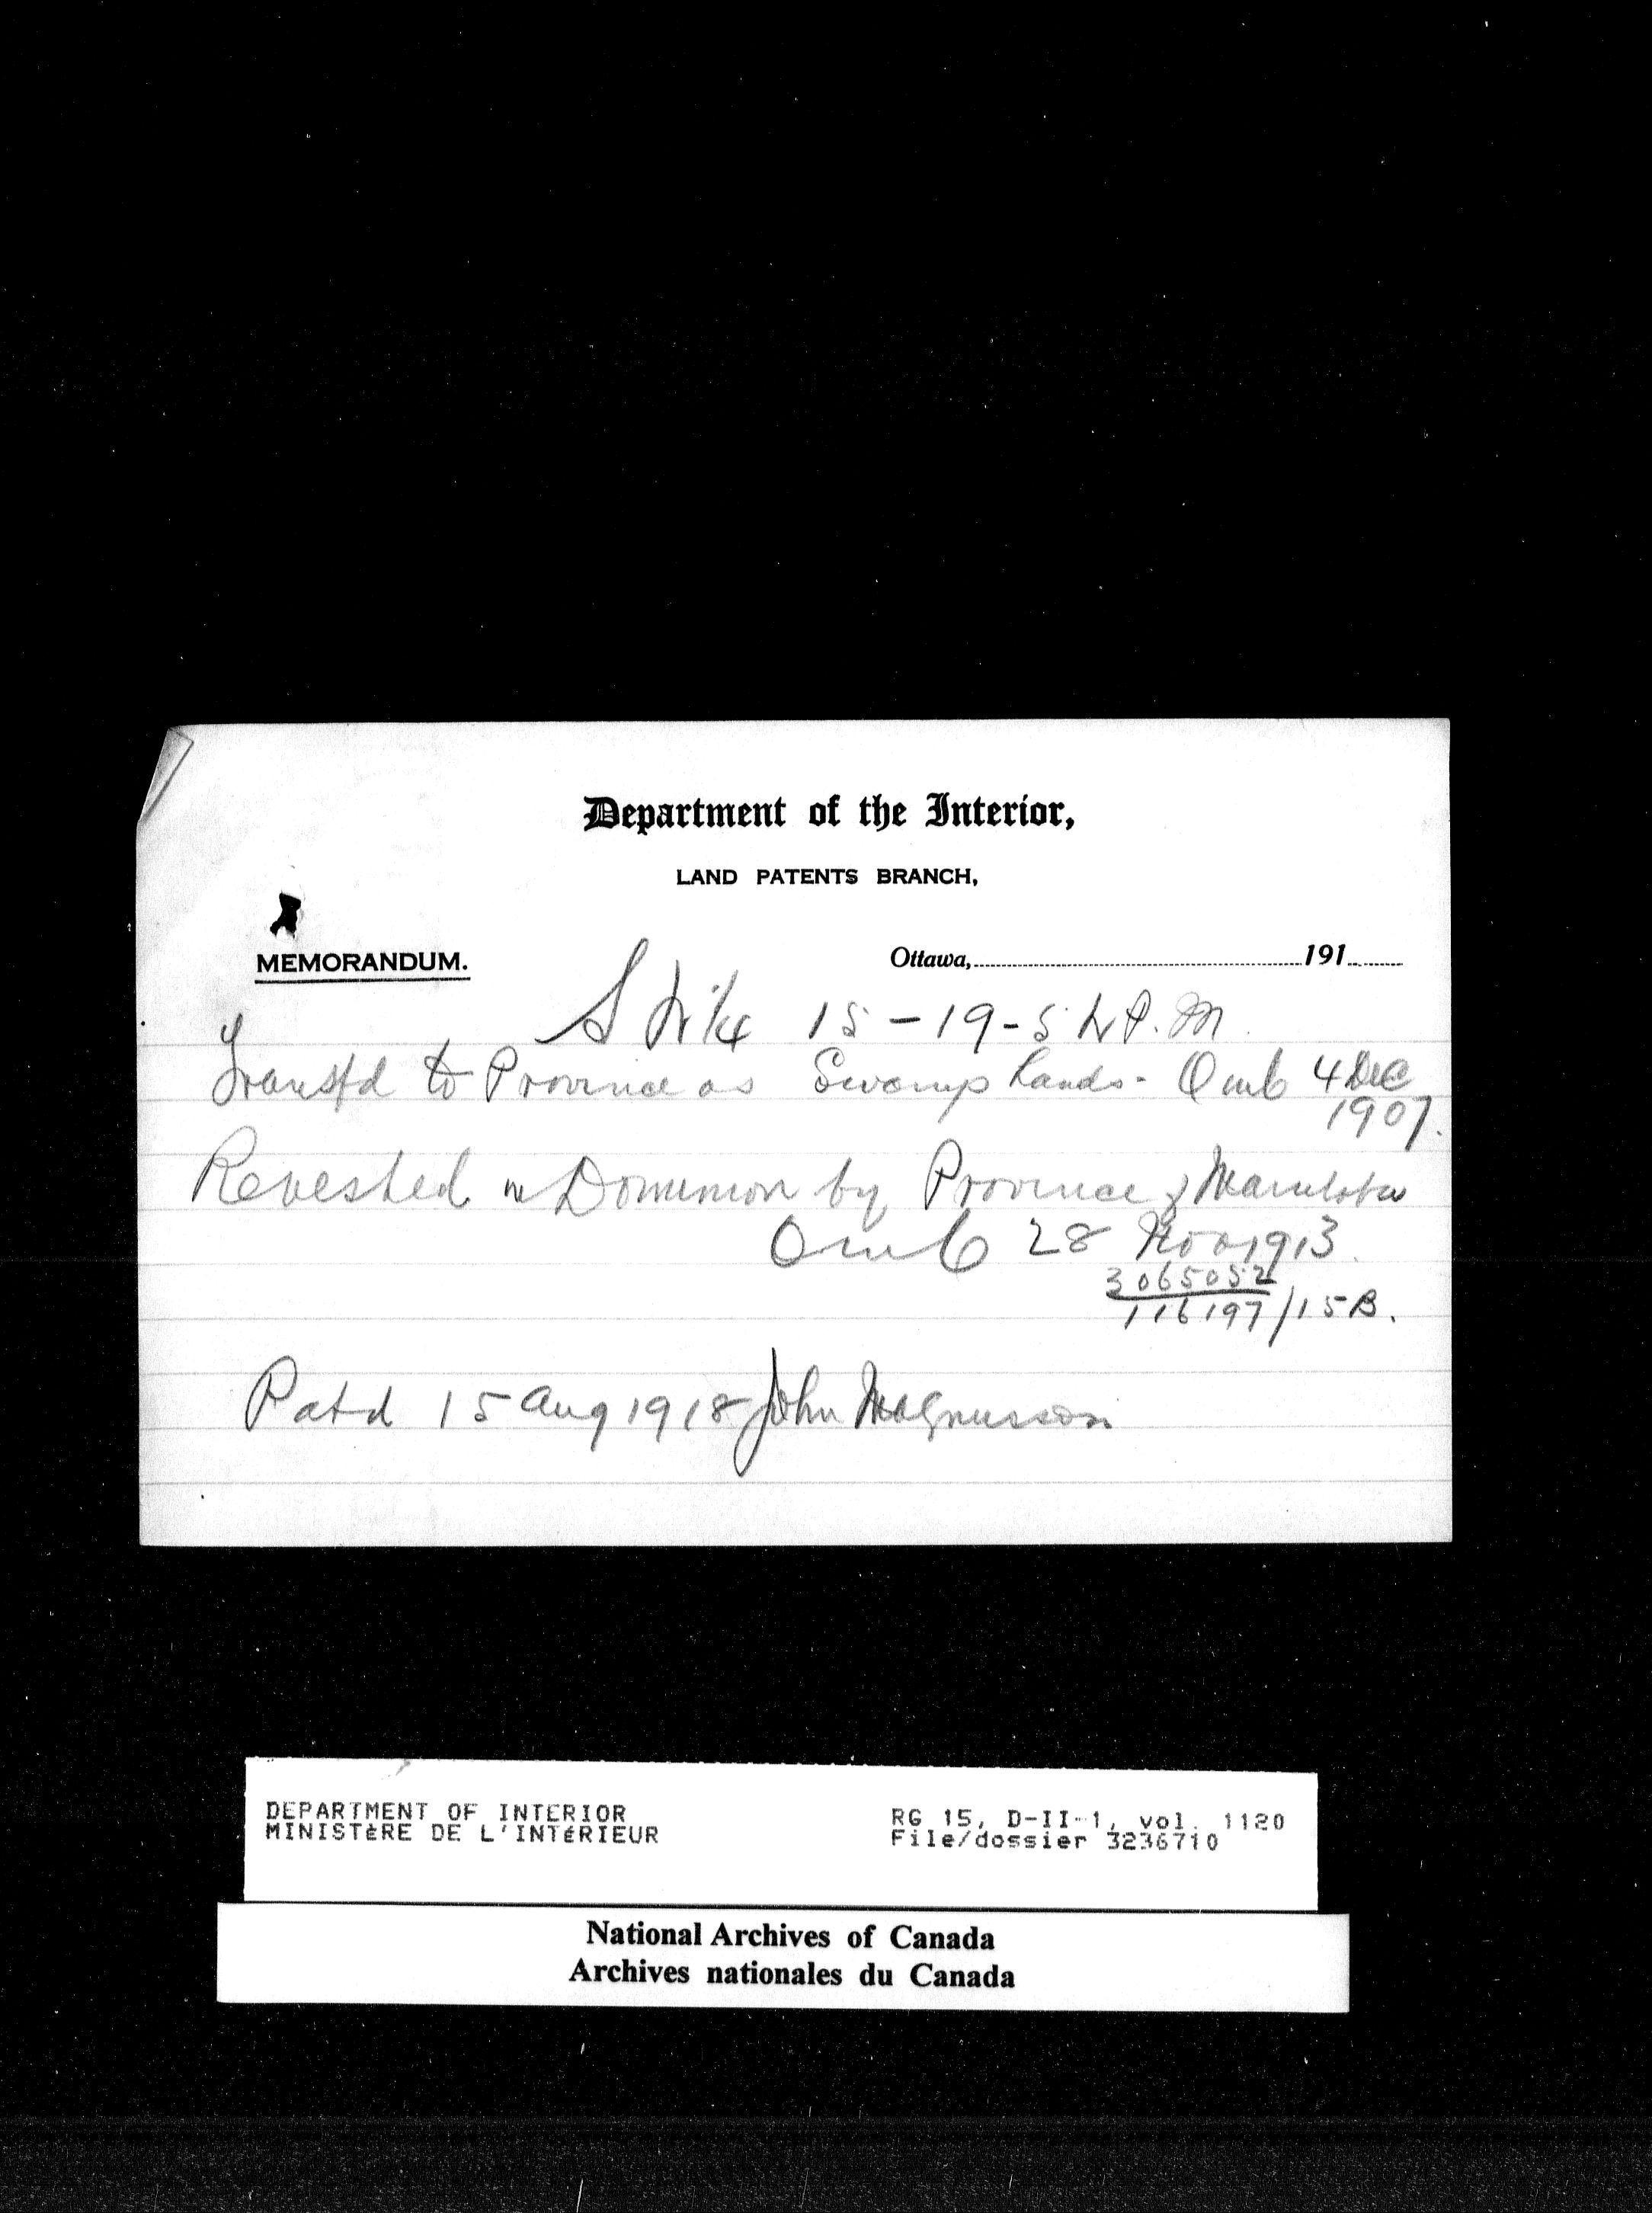 Department of the Interior,
LAND PATENTS BRANCH,
MEMORANDUM.
Ottawa, 191
S W 1/4 15-19-5 W P. M
Transfd to Province as Swamp Lands - O in C 4 Dec
1907.
Revested in Dominion by Province of Manitoba
O in C 28 Nov 1913
3065052
116197/15B.
Patd 15 Aug 1918 John Magnusson
DEPARTMENT OF INTERIOR
MINISTèRE DE L'INTéRIEUR
RG 15, D-II-1, vol. 1120
File/dossier 3236710
National Archives of Canada
Archives nationales du Canada